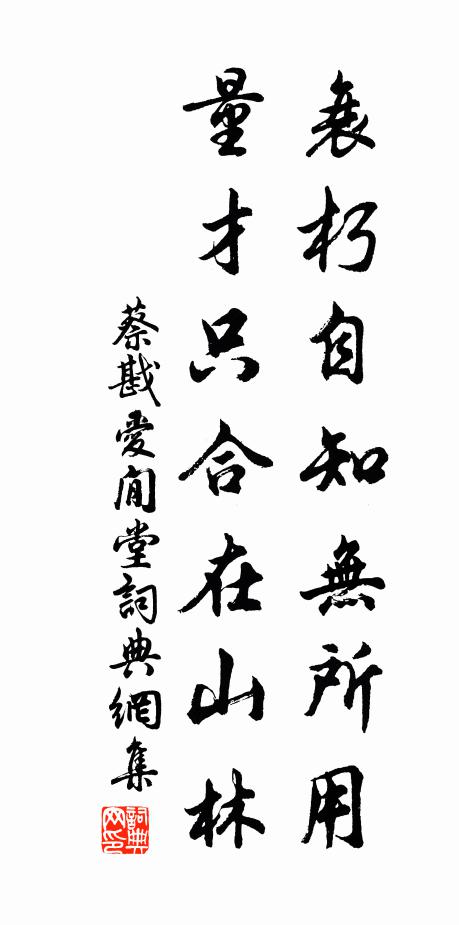 衰朽自知無所用
量才只合在山林
蔡戡愛閒堂詞典網集
詞典網印